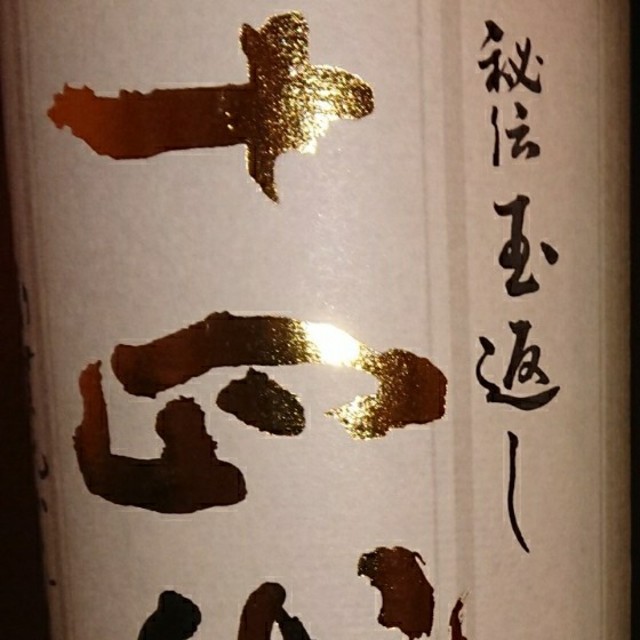 秘伝玉返し
十四